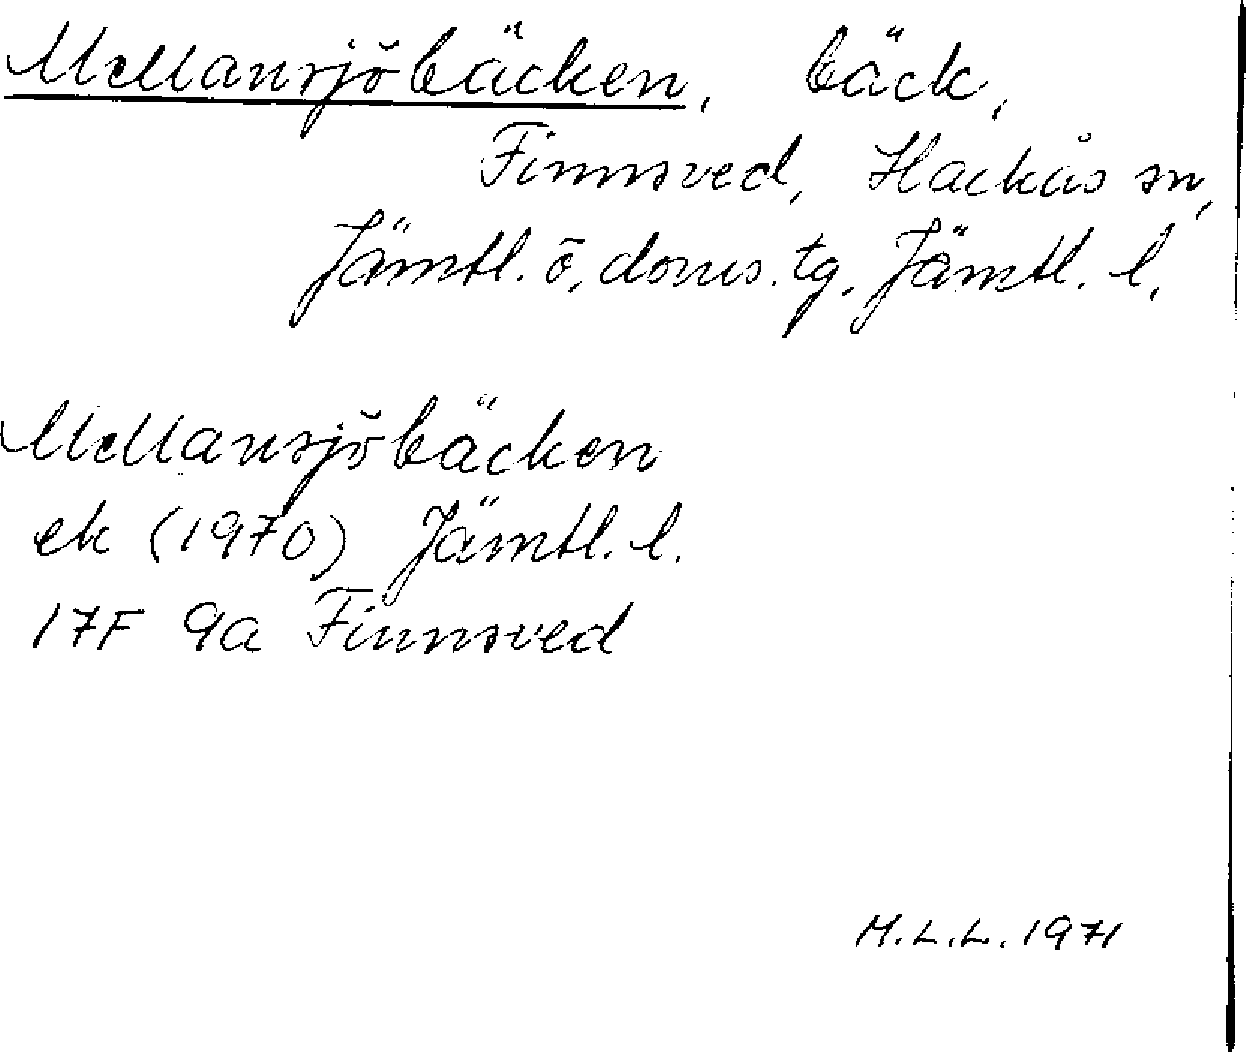 Mellansjöbäcken, bäck,
Finnsved, Hackås sn,
Jämtl. ö. doms. tg. Jämtl. l.
Mellansjöbäcken
ek (1970) Jämtl. l.
17F 9a Finnsved
M.L.L. 1971